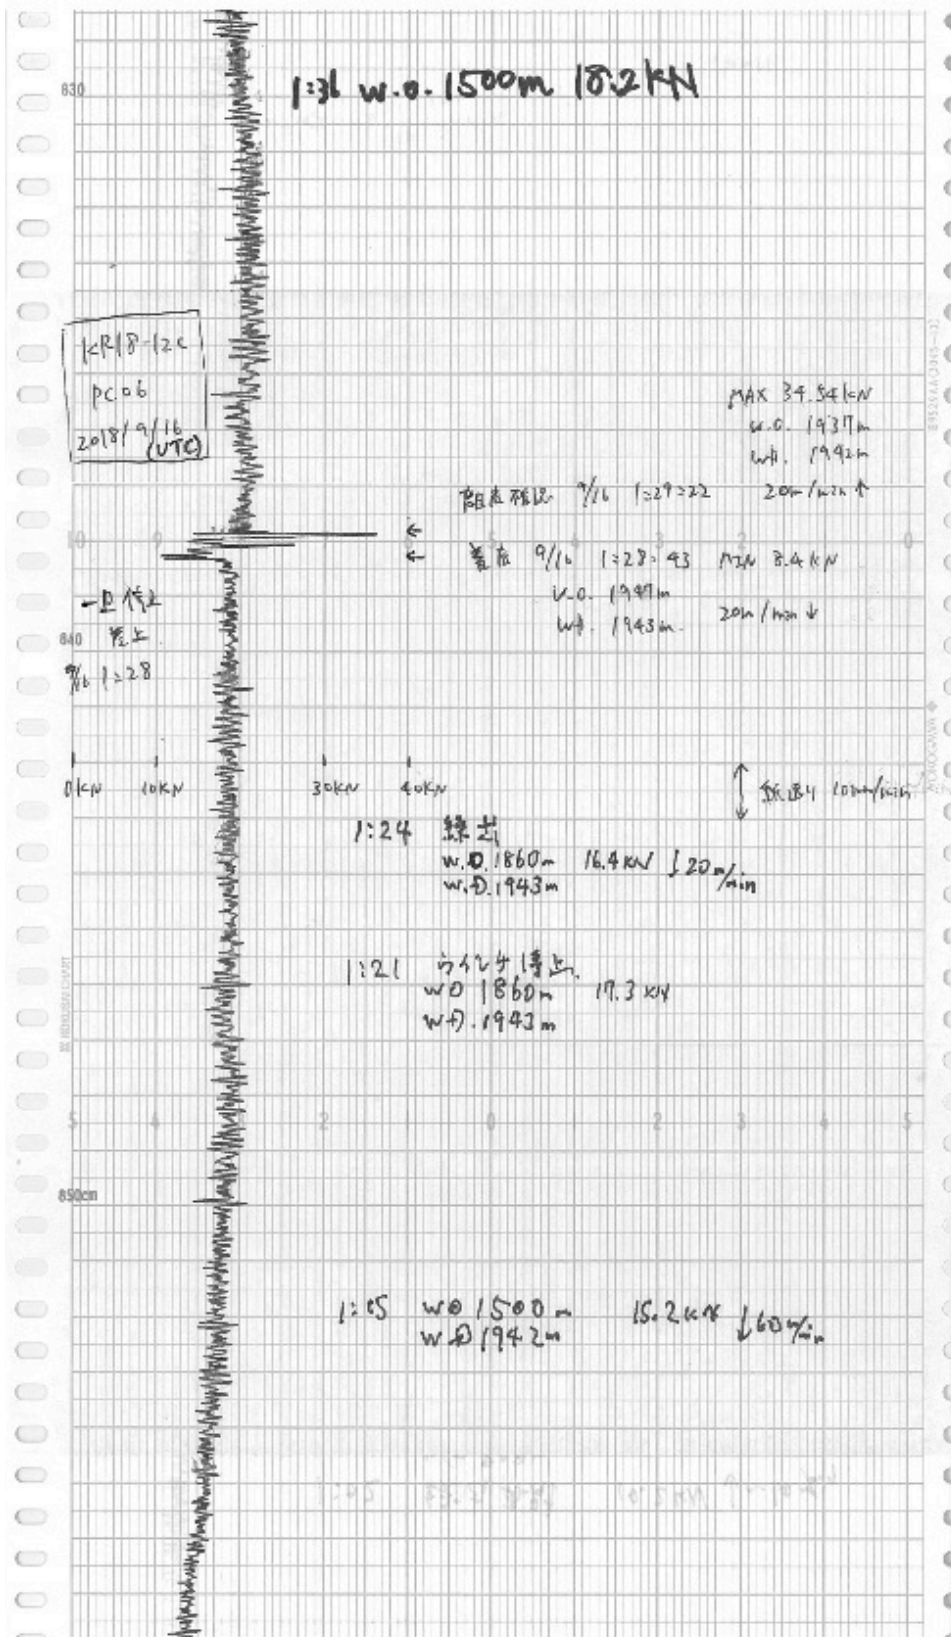 830
1:36 W.O. 1500m 18.2kN
KR18-12C
PC06
2018/9/16
(UTC)
MAX 34.54kN
W.O. 1937m
WD. 1942m
離底確認 9/16 1:29:22 20m/min ↑
10
0
←
← 着底 9/16 1:28:43 MIN 8.4kN
W.O. 1947m
WD. 1943m. 20m/min ↓
一旦停止
840
9/16 1:28
0kN 10kN 30kN 40kN
紙送り 10mm/min
1:24 繰出
W.O. 1860m 16.4kN ↓20m/min
W.D. 1943m
1:21 ウインチ停止.
WO 1860m 17.3kN
WD. 1943m
5 4 2 0 2 3 4 5
850cm
1:05 WO 1500m 15.2kN ↓60m/min
W.D 1942m